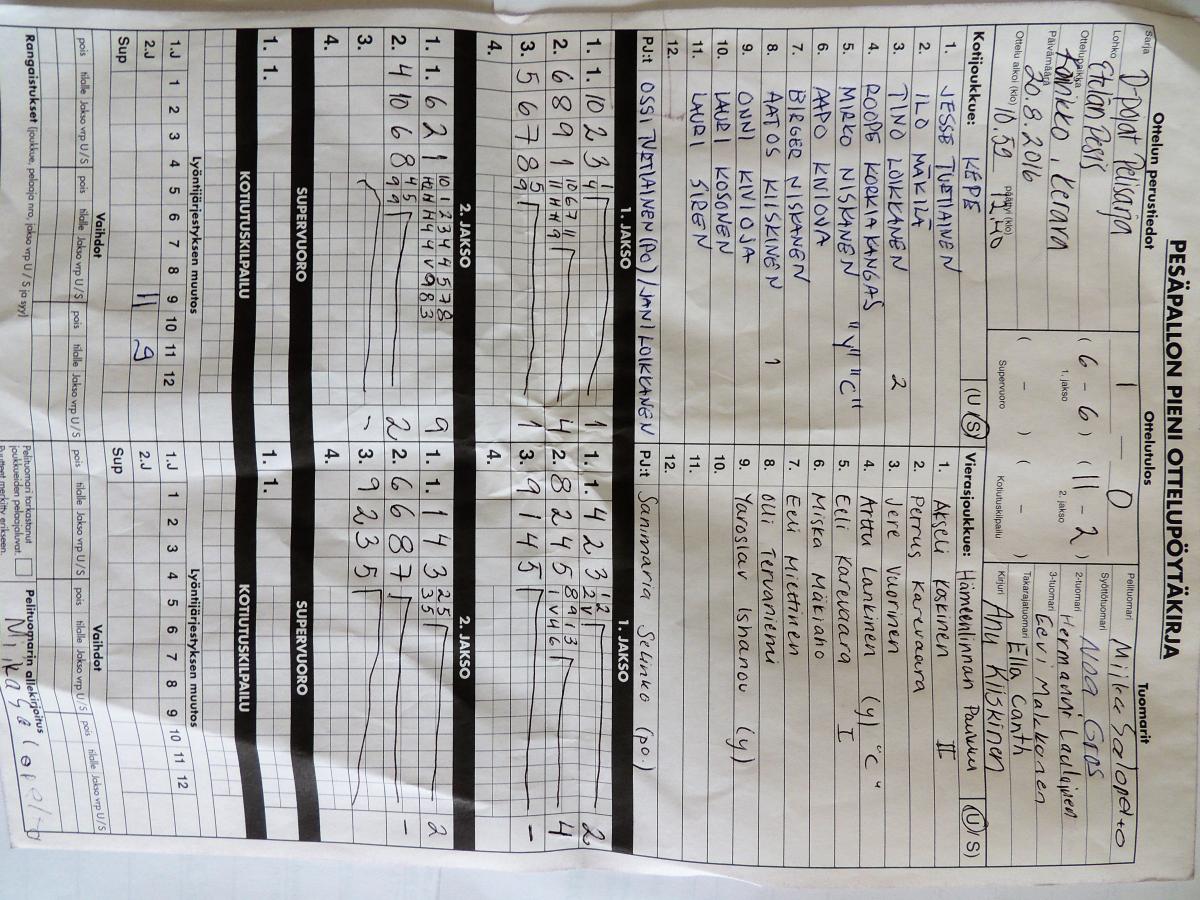 PESÄPALLON PIENI OTTELUPÖYTÄKIRJA
Ottelun perustiedot
Sarja D-pojat Pelisarja
Lohko Etelän Pesis
Ottelupaikka Kerava
Päivämäärä 20.8.2016
Ottelu alkoi (klo) 10.59 päättyi (klo) 12.40
Ottelutulos
1 — 0
( 6 - 6 ) ( 11 - 2 )
1. jakso 2. jakso
( - ) ( - )
Supervuoro Kotiutuskilpailu
Tuomarit
Pelituomari Miika Saolopelto
Syöttötuomari Nona Gros
2-tuomari Hermanni
3-tuomari Eevi Makkonen
Takarajatuomari Ella Canth
Kirjuri Anu Kiiskinen
Kotijoukkue: KEPE (U/S)
1. JESSE TUETIAINEN
2. ILO MÄKILÄ
3. TINO LOIKKANEN 2
4. ROOPE KORKIAKANGAS
5. MIRKO NISKANEN "y" "C"
6. AAPO KIVIOVA
7. BIRGER NISKANEN
8. AATOS KIISKINEN 1
9. ONNI KIVIOJA
10. LAURI KOSONEN
11. LAURI SIREN
12.
PJ:t OSSI TUETIAINEN (PO) / JANI LOIKKANEN
Vierasjoukkue: Hämeenlinnan (U/S)
1. Akseli Kakinen II
2. Perttus Karevaara
3. Jere Vuorinen
4. Arttu Lankinen (y) "C"
5. Eeli Karevaara I
6. Miska Mäkiaho
7. Eeli Miettinen
8. Olli Tervaniemi
9. Yaroslav Ishanov (y)
10.
11.
12.
PJ:t Sanimaria Selinko (po.)
1. JAKSO 1. JAKSO
1. 1. 10 2 3 1 4 1
2. 6 8 9 1 4
3. 5 6 7 8 5 9 1
4.
1. 1. 4 2 3 2
2. 8 2 4 5 4
3. 9 1 4 5 -
4.
2. JAKSO 2. JAKSO
1. 1. 6 2 1 9
2. 4 10 6 8 2
3. -
4.
1. 1. 1 4 3 2
2. 6 6 8 7 -
3. 9 2 3 5
4.
SUPERVUORO SUPERVUORO
1. 1. 1. 1.
KOTIUTUSKILPAILU KOTIUTUSKILPAILU
Lyöntijärjestyksen muutos
1 2 3 4 5 6 7 8 9 10 11 12
1.J
2.J 11 9
Sup
Lyöntijärjestyksen muutos
1 2 3 4 5 6 7 8 9 10 11 12
1.J
2.J
Sup
Vaihdot Vaihdot
pois tilalle Jakso vrp U/S pois tilalle Jakso vrp U/S pois tilalle Jakso vrp U/S
pois tilalle Jakso vrp U/S pois tilalle Jakso vrp U/S pois tilalle Jakso vrp U/S
Rangaistukset (joukkue, pelaaja nro, jakso vrp U / S ja syy)
Pelituomari tarkastanut
joukkueiden pelaajaluvat.
Puutteet merkitty erikseen.
Pelituomarin allekirjoitus